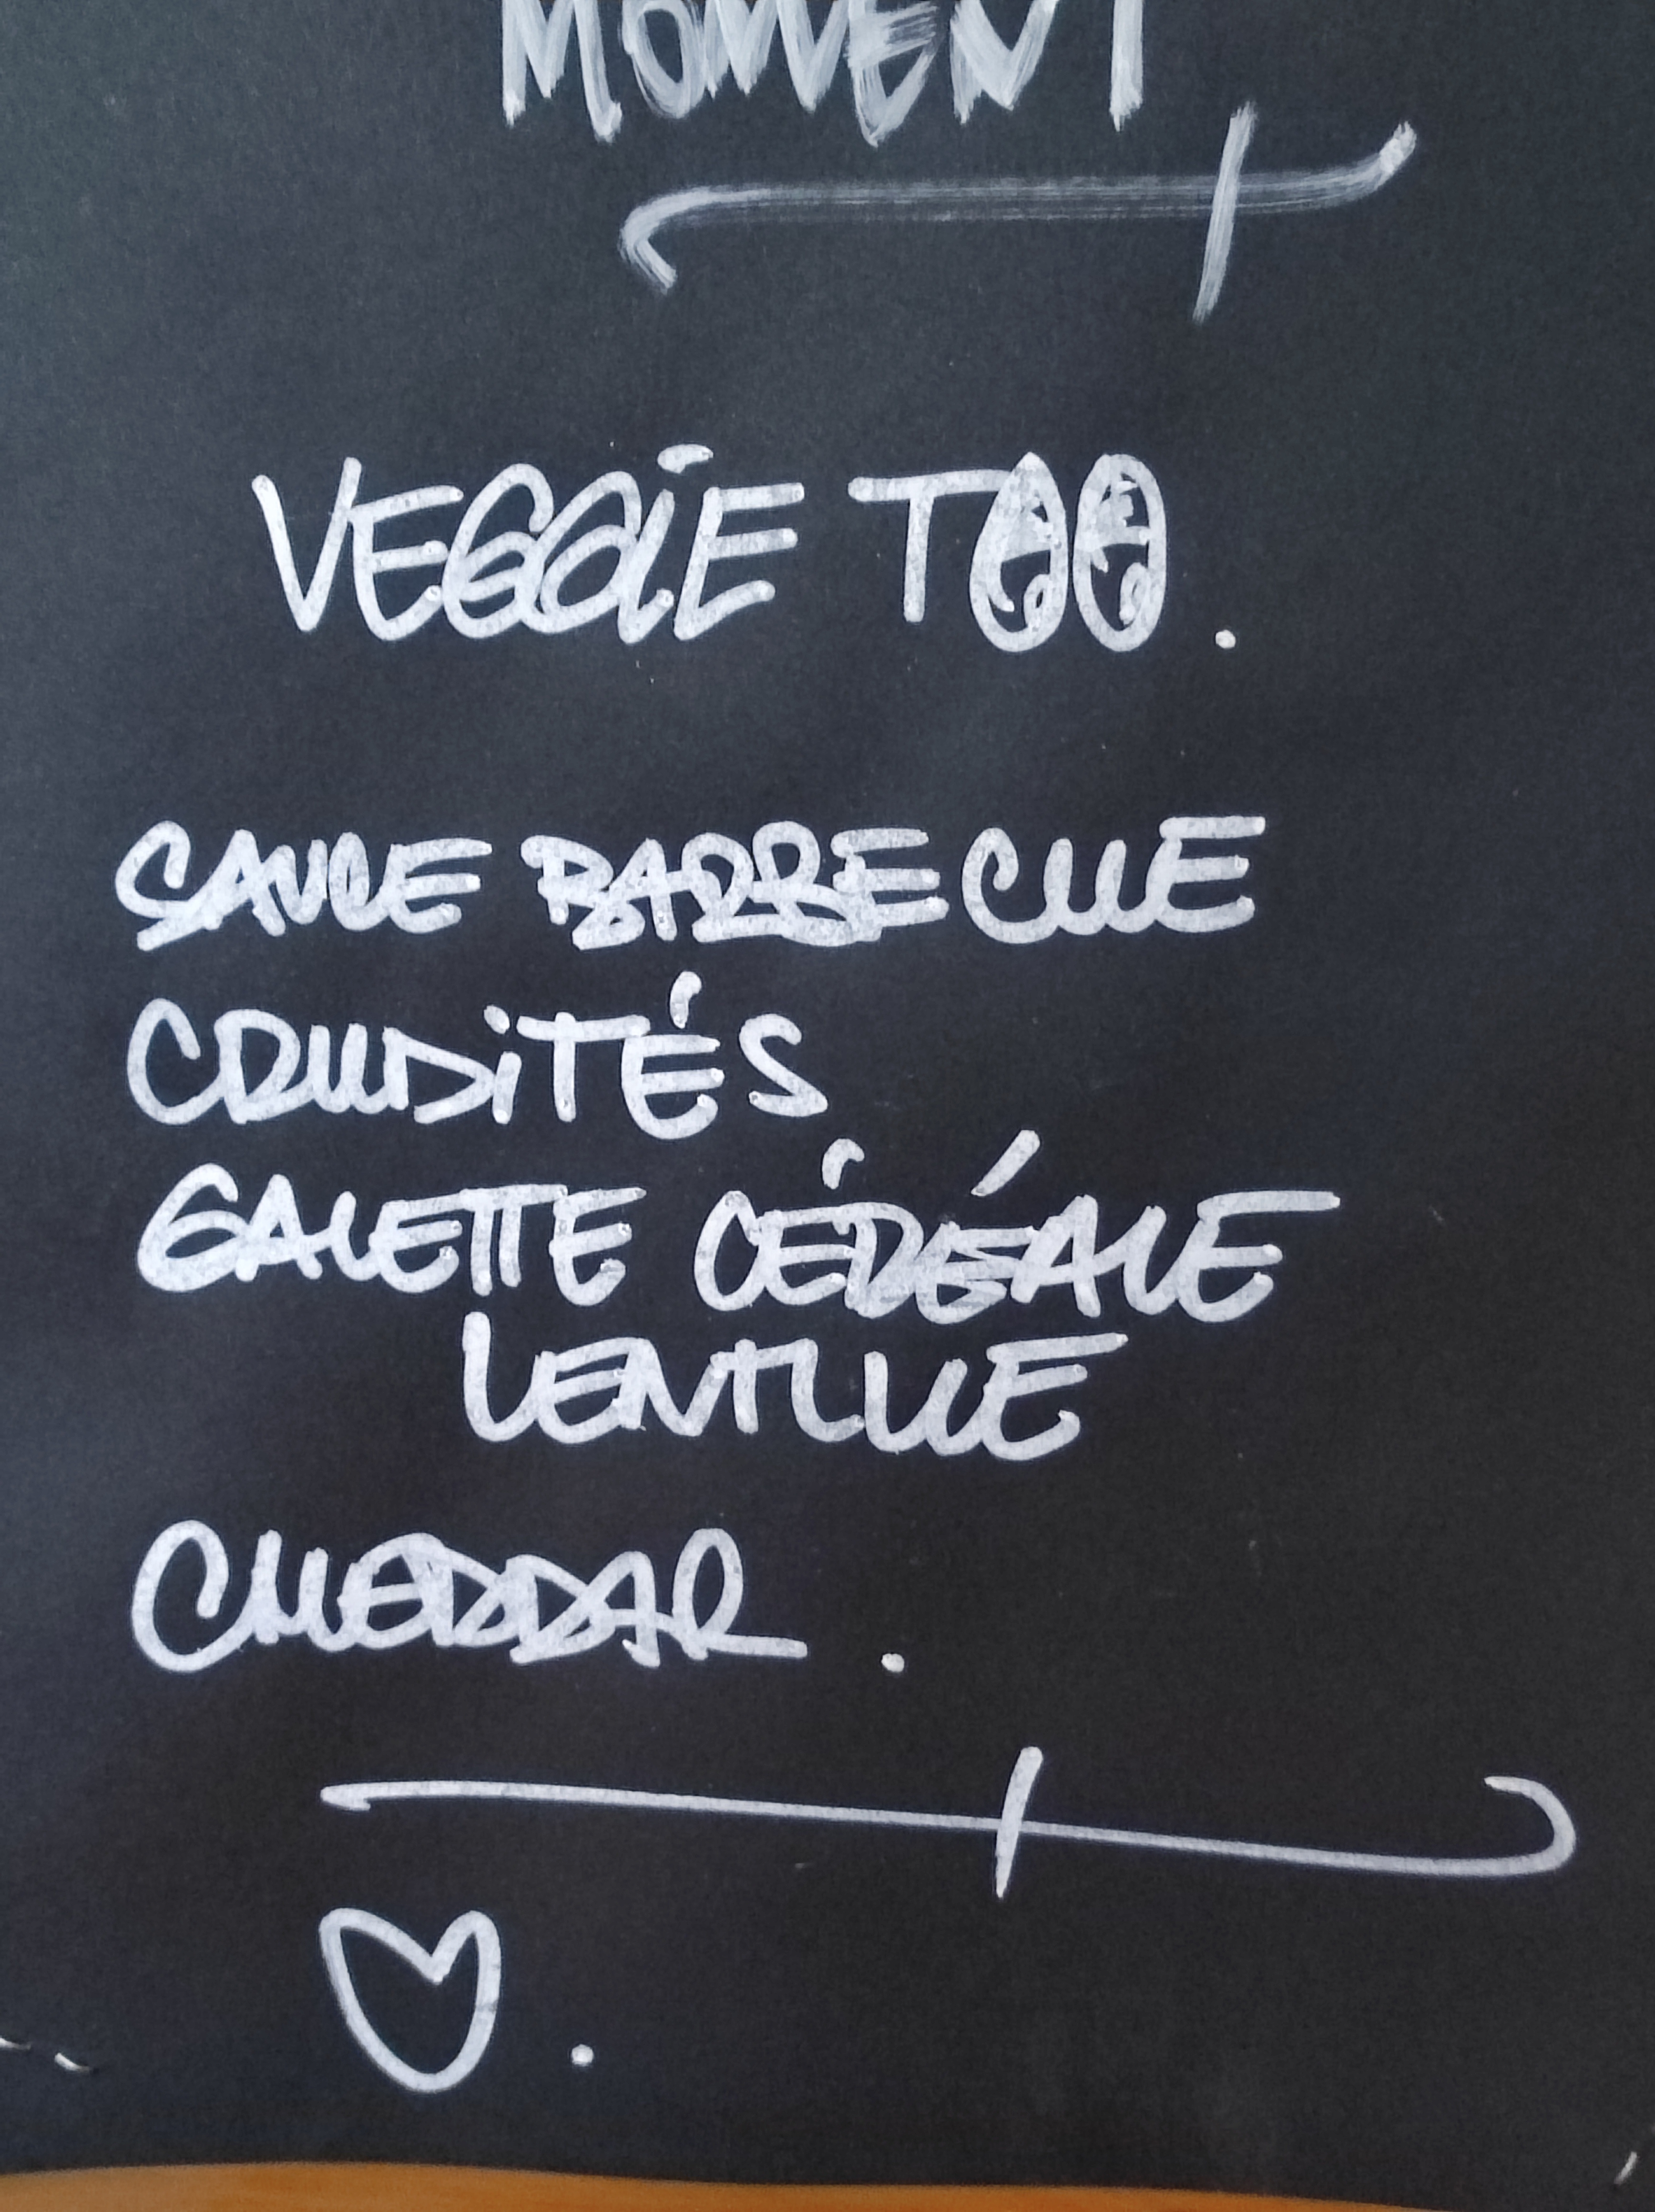 MOMENT
VEGGIE TOO.
SAUCE BARBECUE
CRUDITÉS
GALETTE CÉRÉALE
LENTILLE
CHEDDAR.